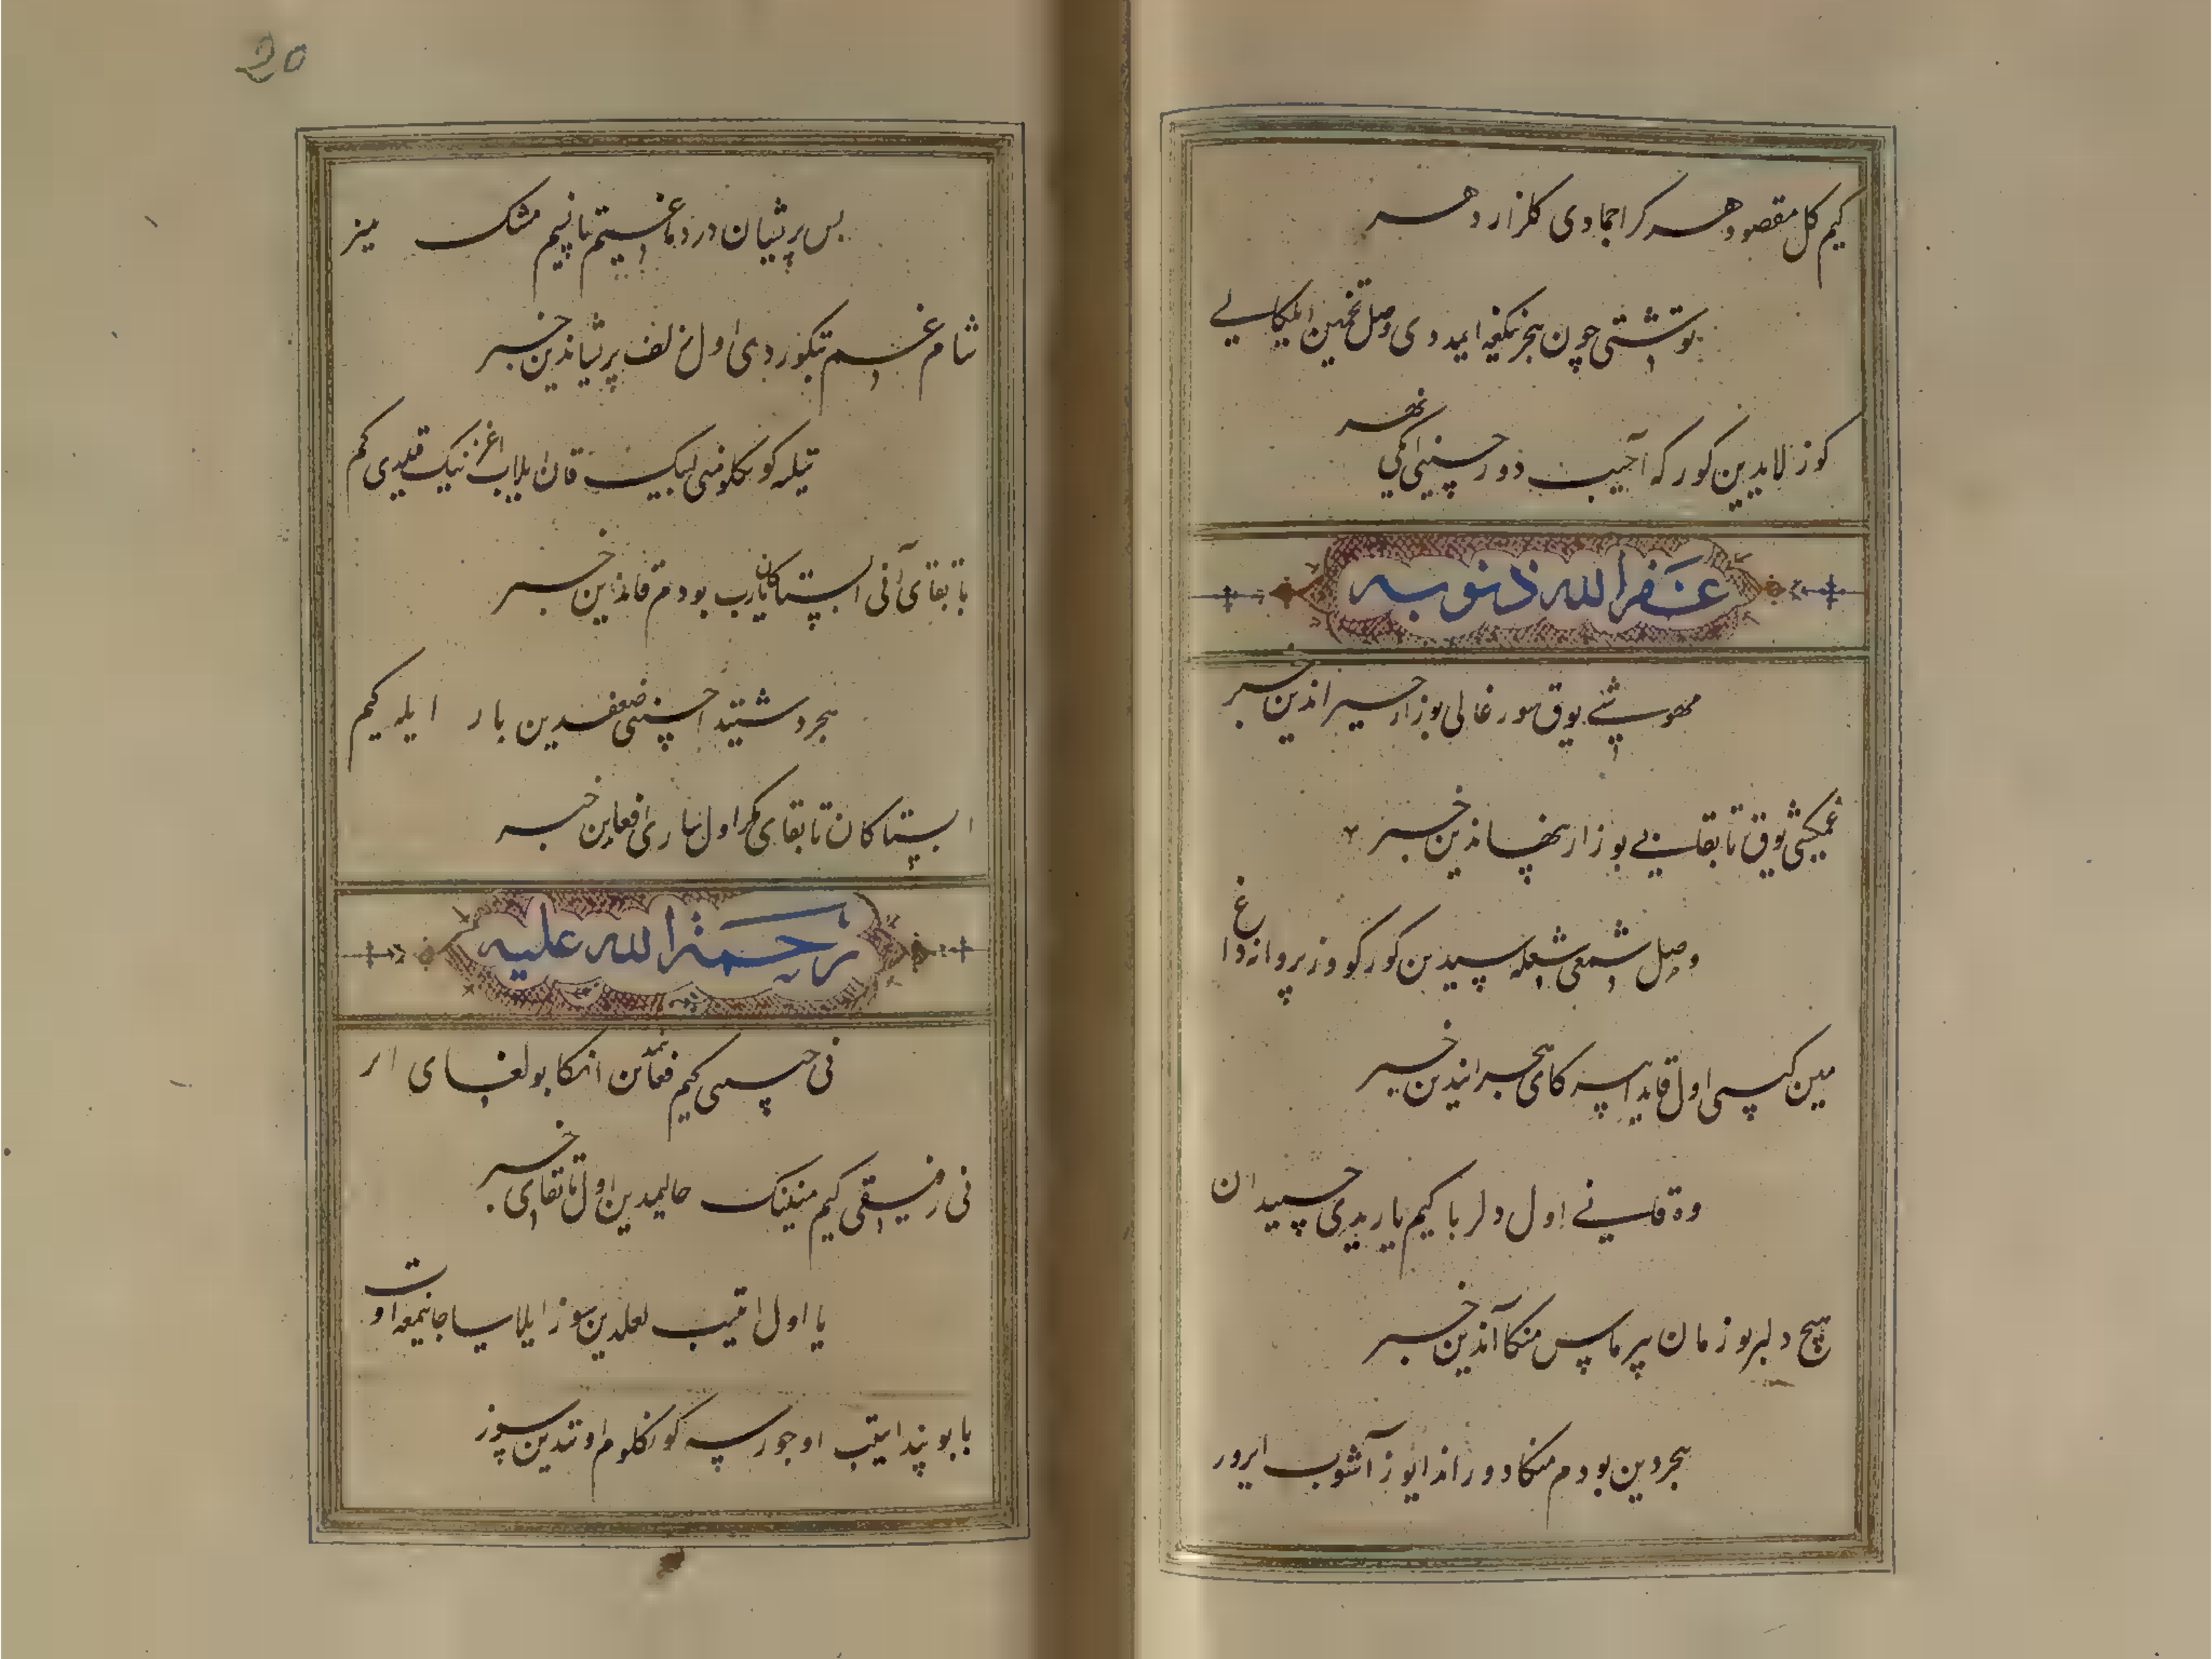 کیم کل مقصود هر کز اجمادی کلزار دهر
توشتی چون هجریکغه ایمدوی وصل تخمین ایلکالی
کوزلاریدین کور که آچیب دور حسنی انکی نهر
غفر الله ذنوبه
مهوشی یوق سورغالی بوزار حیراندین خبر
غمکشی یوق تابقالی بو زار پنهاندین خبر
وصل شمعی شعله سیدین کورکوروز پروانه داغ
مین کیسی اول قایدا ایسرکای هجراندین خبر
وه قانی اول دلربا کیم یاریدی حسیدان
هیچ دلبر بو زمان بیرماس منکا آندین خبر
هجردین بودم منکا دوراندا یوز آشوب ایرور
20
بس پریشان دردماغیم تاپیم مشک میز
شام غم تیکوردی اول زلف پریشاندین خبر
تیله کونکلومنی لیک قان ایلاب اغزینک قلیدی کم
تابقای آنی ایستاکان یارب بودم قاندین خبر
هجر دشتیدا چسنی ضعفدین بار ایله کیم
ایستاکان تابقای مکر اول زاری افغاندین خبر
رحمة الله علیه
نی حسی کیم فغانمدین انکا بولغای اثر
نی رفیقی کیم مینینک حالیمدین اول تابقای خبر
یا اول ایتیب لعلدین سوز ایلاسا جانیمغه اوت
یا بو پند ایتیب اوجورسه کونکلوم اوتیدین سوز